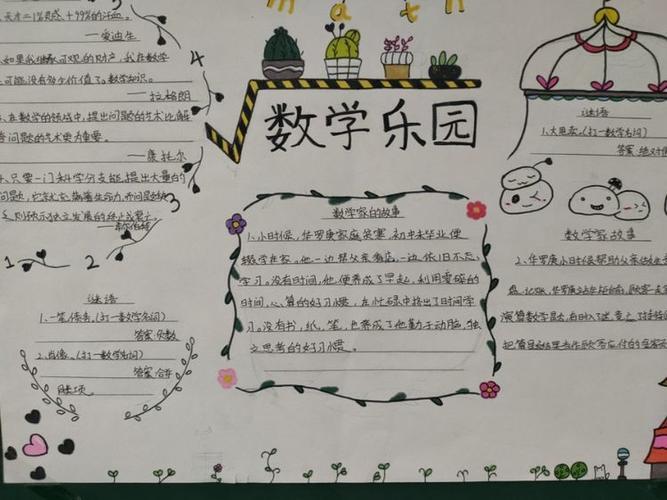 m a t h
天才=1%灵感,+99%的汗血。
——爱迪生
如果我继承可观的财产,我在数学
上可能没有多少价值了。数学知识。
——拉格朗
在数学的领域中,提出问题的艺术比解
答问题的艺术更为重要。
——康托尔
只要一门科学分支能提出大量的
问题,它就充满着生命力,
独立发展的终止或衰亡。
1
2
3
4
谜语
1、一笔债务(打一数学名词)
答案:负数
2、肖像。(打一数学名词)
答案:合并
同类项
数学乐园
数学家的故事
1、小时候,华罗庚家庭贫寒,初中未毕业便
辍学在家。他一边帮父亲看店,一边依旧不忘
学习。没有时间,他便养成了早起,利用零碎的
时间,心算的好习惯,在忙碌中挤出了时间学
习。没有书,纸,笔,也养成了他勤于动脑,独
立思考的好习惯。
谜语
1、大甩卖。(打一数学名词)
答案:绝对
数学家故事
2、华罗庚小时候帮助父亲